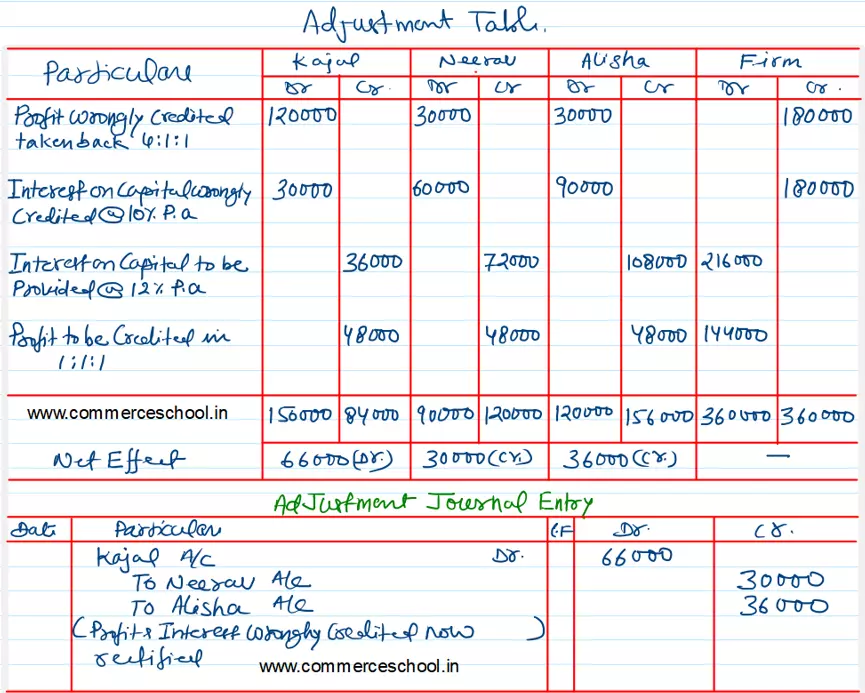 Adjustment Table.
Particulars Kajal Neerav Alisha Firm
Dr Cr. Dr Cr Dr Cr Dr Cr.
Profit wrongly Credited 120000 30000 30000 180000
taken back 4:1:1
Interest on Capital wrongly 30000 60000 90000 180000
Credited @ 10% P.a
Interest on Capital to be 36000 72000 108000 216000
Provided @ 12% P.a
Profit to be Credited in 48000 48000 48000 144000
1:1:1
www.commerceschool.in 150000 84000 90000 120000 120000 156000 360000 360000
Net Effect 66000 (Dr.) 30000 (Cr.) 36000 (Cr.) —
Adjustment Journal Entry
Date Particulars L.F Dr. Cr.
Kajal A/c Dr. 66000
To Neerav A/c 30000
To Alisha A/c 36000
(Profit & Interest wrongly Credited now )
rectified
www.commerceschool.in